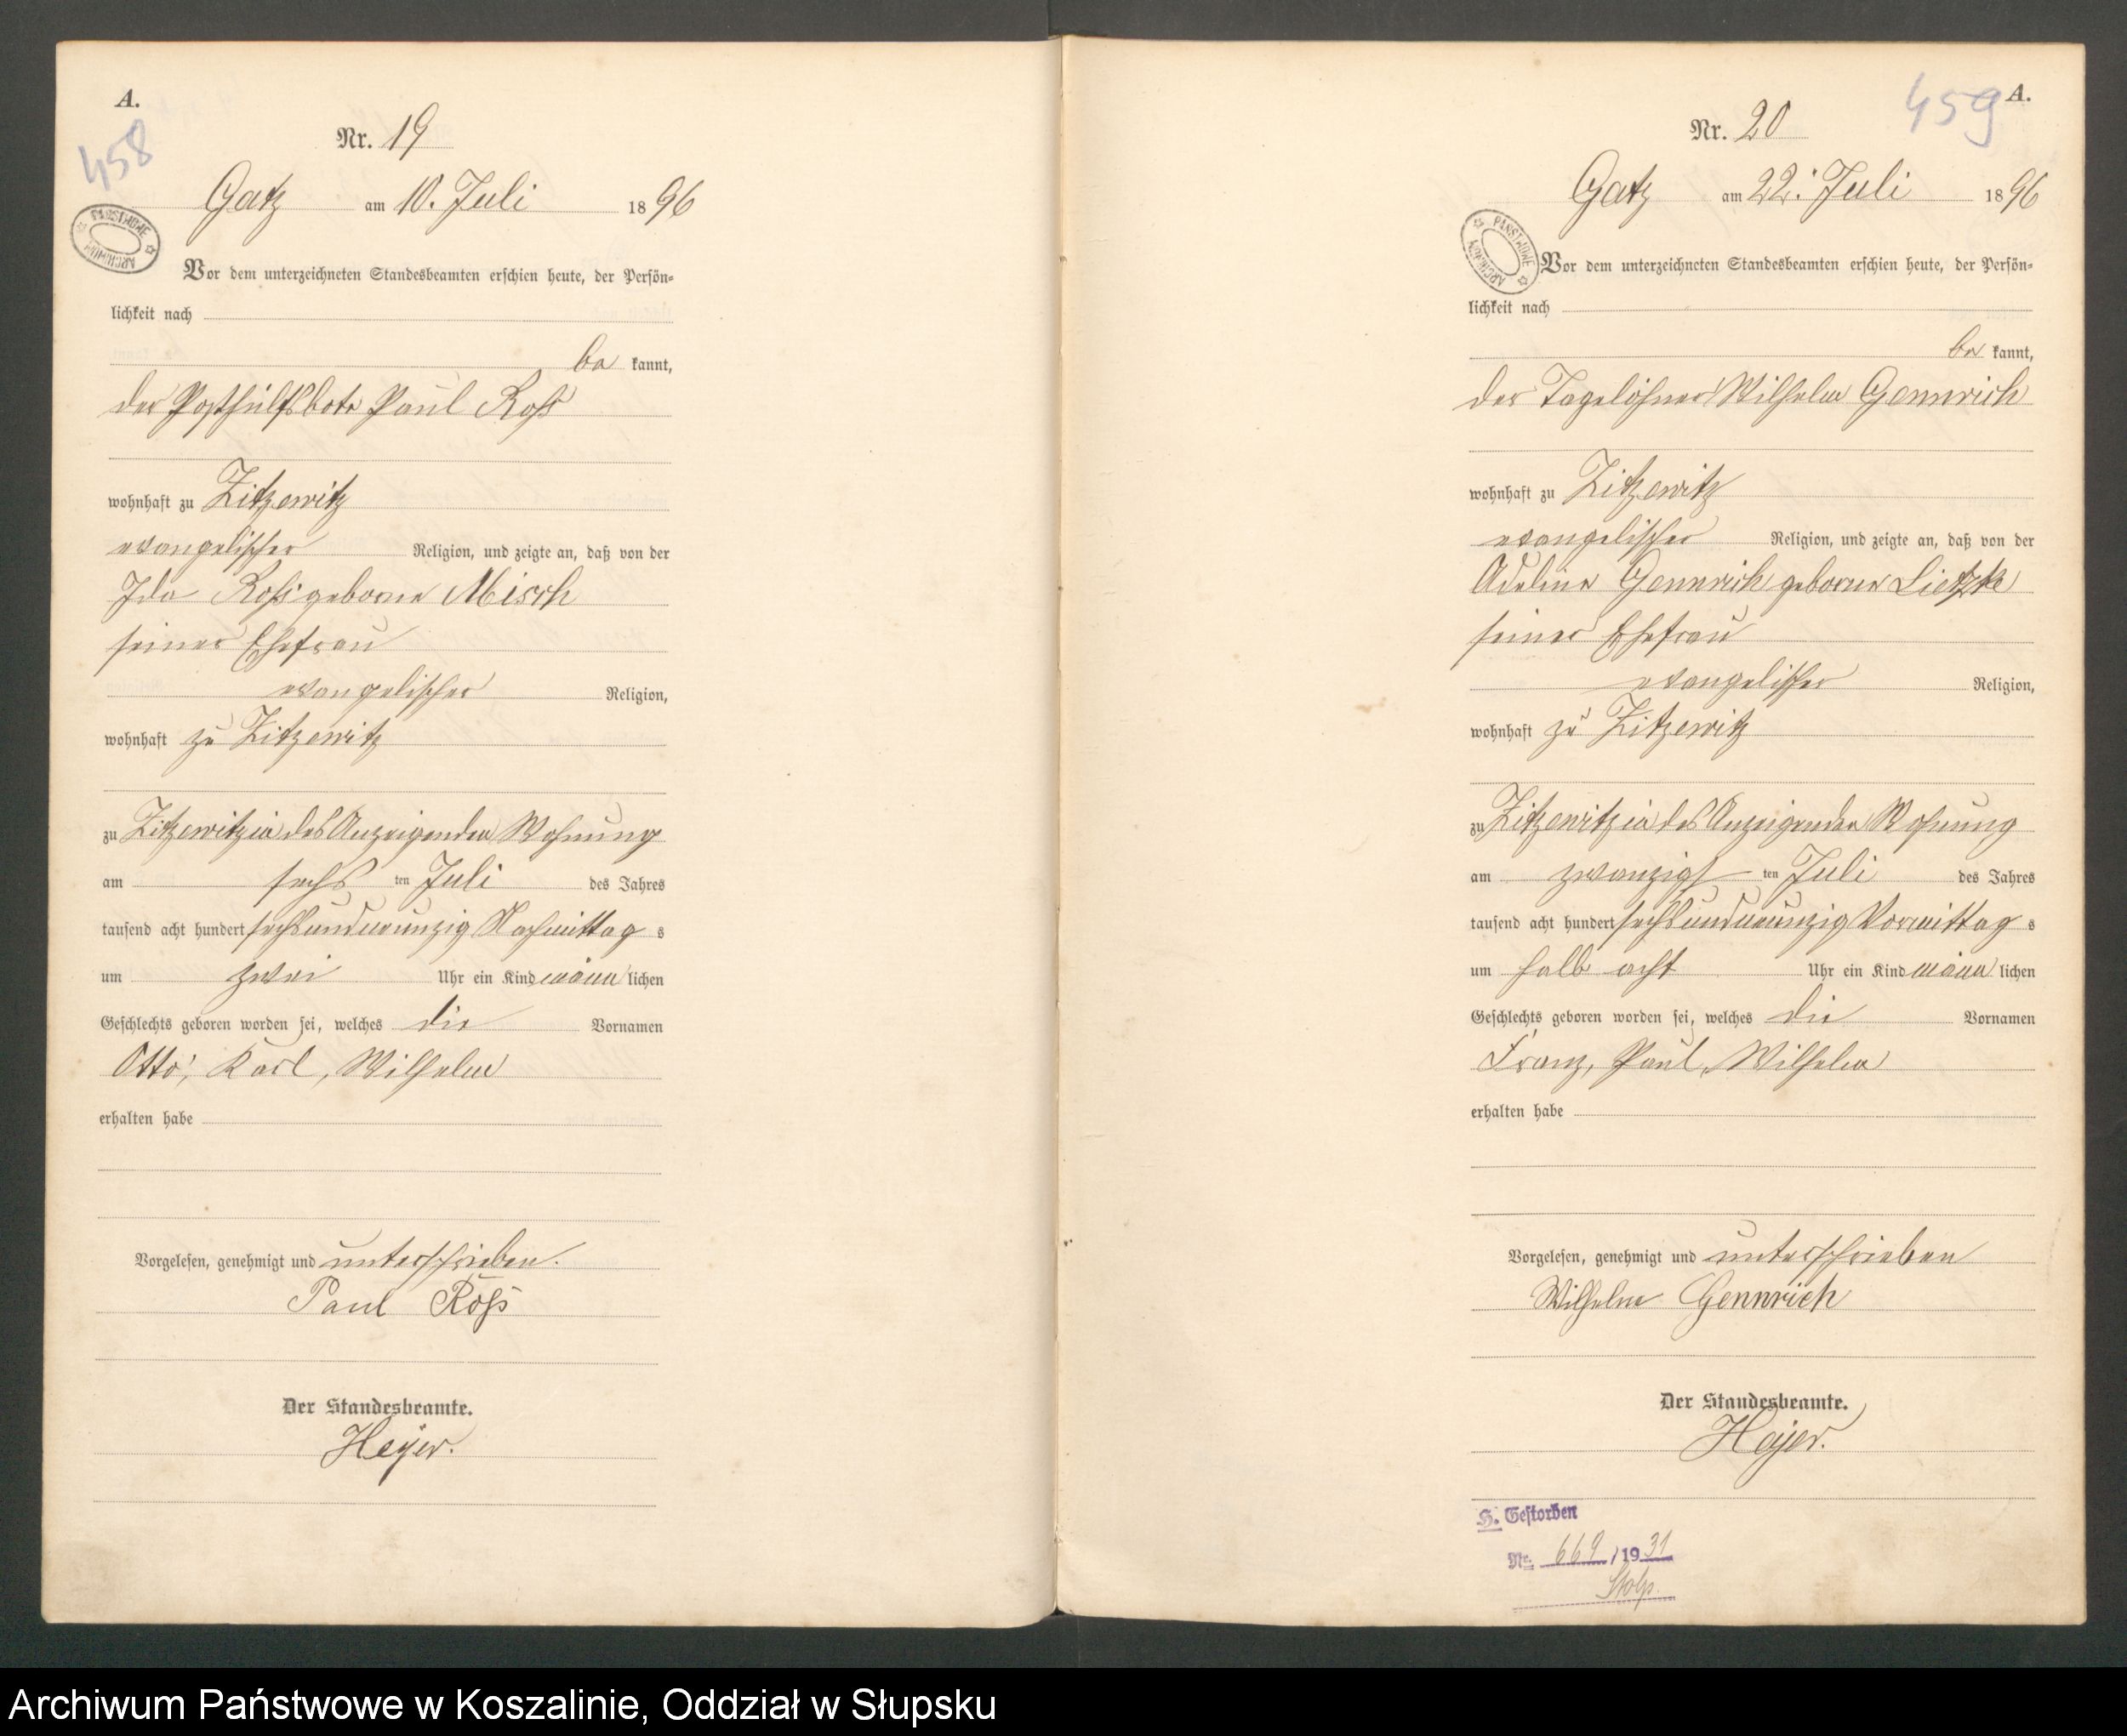 A.
458
Nr. 19
Gatz am 10. Juli 1896
PAŃSTWOWE ARCHIWUM
Vor dem unterzeichneten Standesbeamten erschien heute, der Persön-
lichkeit nach
be kannt,
der Posthülfsbote Paul Roß
wohnhaft zu Zitzewitz
evangelischer Religion, und zeigte an, daß von der
Ida Roß geborne Misch
seiner Ehefrau
evangelischer Religion,
wohnhaft zu Zitzewitz
zu Zitzewitz in des Anzeigenden Wohnung
am sechs ten Juli des Jahres
tausend acht hundert sechsundneunzig Nachmittag s
um zwei Uhr ein Kind männ lichen
Geschlechts geboren worden sei, welches die Vornamen
Otto, Karl, Wilhelm
erhalten habe
Vorgelesen, genehmigt und unterschrieben.
Paul Roß
Der Standesbeamte.
Heyer.
459 A.
Nr. 20
Gatz am 22. Juli 1896
PAŃSTWOWE ARCHIWUM
Vor dem unterzeichneten Standesbeamten erschien heute, der Persön-
lichkeit nach
be kannt,
der Tagelöhner Wilhelm Gennrich
wohnhaft zu Zitzewitz
evangelischer Religion, und zeigte an, daß von der
Adeline Gennrich geborne Lietzke
seiner Ehefrau
evangelischer Religion,
wohnhaft zu Zitzewitz
zu Zitzewitz in des Anzeigenden Wohnung
am zwanzigs ten Juli des Jahres
tausend acht hundert sechsundneunzig Vormittag s
um halb acht Uhr ein Kind männ lichen
Geschlechts geboren worden sei, welches die Vornamen
Franz, Paul, Wilhelm
erhalten habe
Vorgelesen, genehmigt und unterschrieben
Wilhelm Gennrich
Der Standesbeamte.
Heyer.
H. Gestorben
Nr. 669 / 1931
Stolp.
Archiwum Państwowe w Koszalinie, Oddział w Słupsku